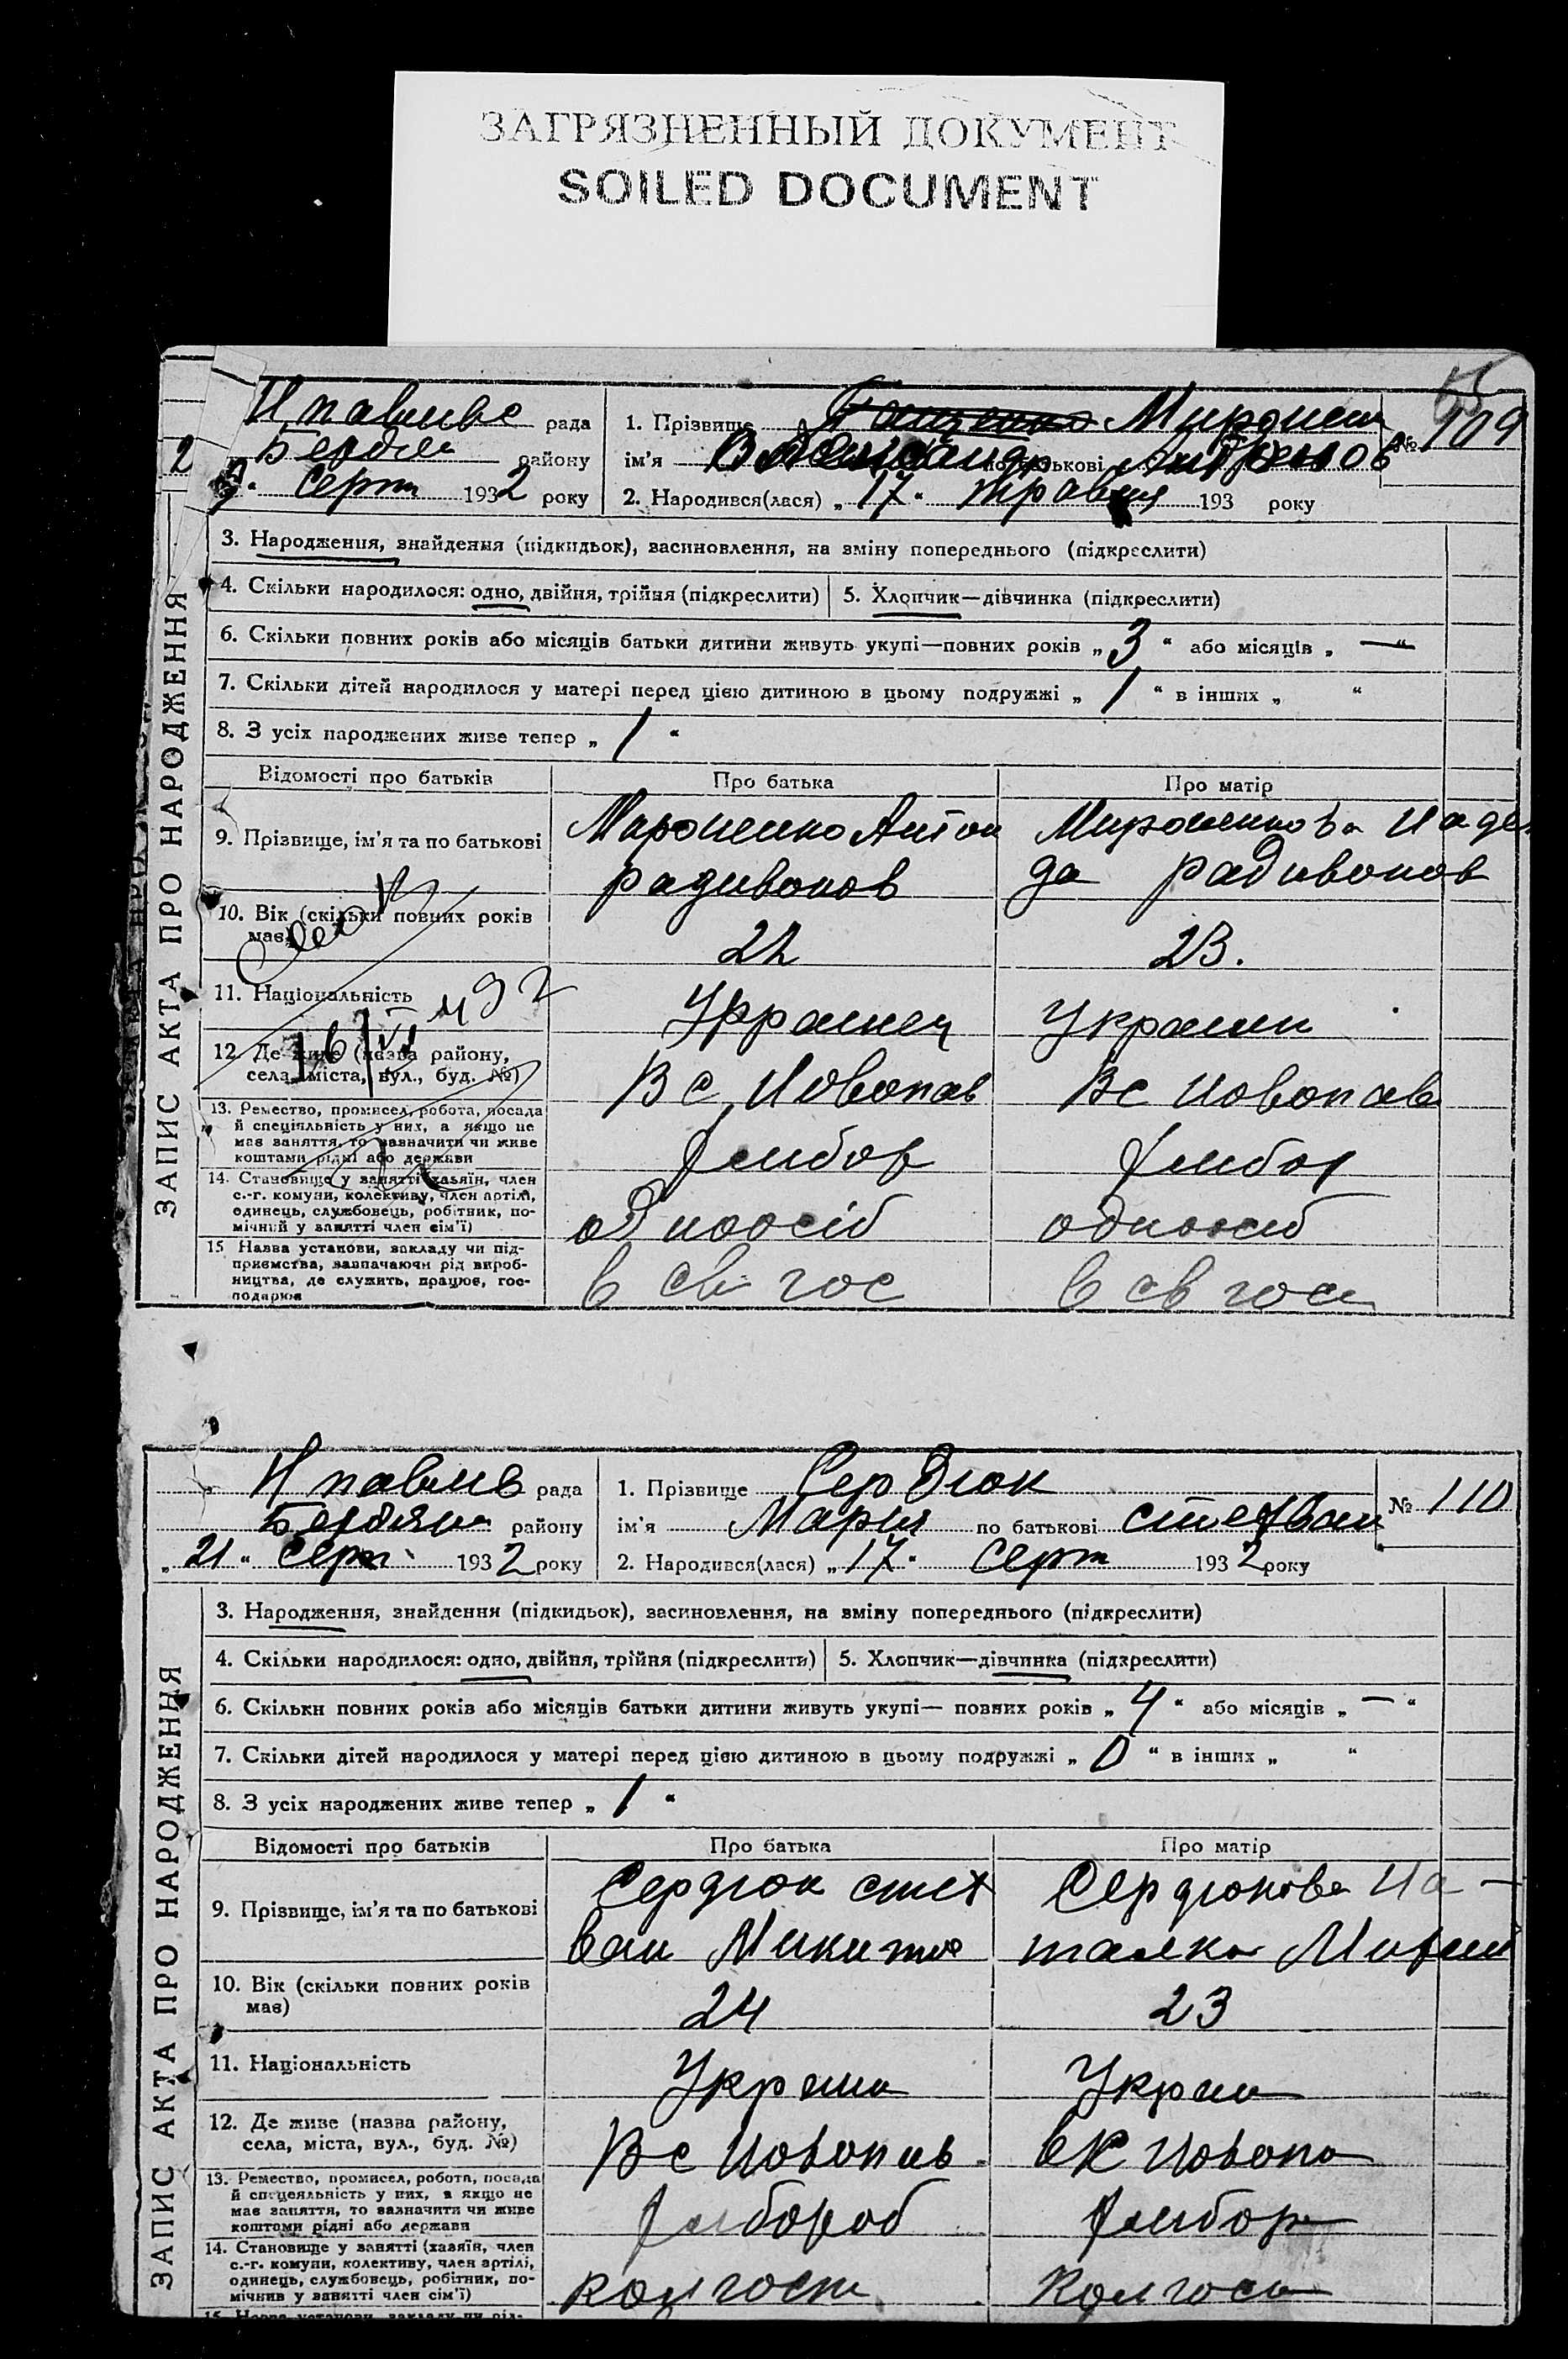 ЗАГРЯЗНЕННЫЙ ДОКУМЕНТ
SOILED DOCUMENT
рада
1. Прізвище Миронен
№ 109
району
ім'я по батькові
Серп 1932 року
2. Народився(лася) „17" травня 193 року
ЗАПИС АКТА ПРО НАРОДЖЕННЯ
3. Народження, знайдення (підкидьок), засиновлення, на зміну попереднього (підкреслити)
4. Скільки народилося: одно, двійня, трійня (підкреслити)
5. Хлопчик—дівчинка (підкреслити)
6. Скільки повних років або місяців батьки дитини живуть укупі—повних років „3" або місяців „—"
7. Скільки дітей народилося у матері перед цією дитиною в цьому подружжі „1" в інших „ "
8. З усіх народжених живе тепер „1"
Відомості про батьків
Про батька
Про матір
9. Прізвище, ім'я та по батькові
Мироненко Антон
радивонов
Мироненкова Наде
да радивонов
10. Вік (скільки повних років має)
22
23.
11. Національність
Украинец
Украин
12. Де живе (назва району,
села, міста, вул., буд. №)
В с Новопав
В с Новопав
13. Ремество, промисел, робота, посада
й спеціяльність у них, а якщо не
має заняття, то зазначити чи живе
коштами рідні або держави
14. Становище у занятті (хазяїн, член
с.-г. комуни, колективу, член артілі,
одинець, службовець, робітник, по-
мічний у занятті член сім'ї)
одноосіб
одноосіб
15. Назва установи, закладу чи під-
приємства, зазначаючи рід вироб-
ництва, де служить, працює, гос-
подарює
в св гос
в св госп
Н павлив рада
1. Прізвище Сердюк
№ 110
Бердян району
ім'я Мария по батькові степван
„21" серп 1932 року
2. Народився(лася) „17" Серп 1932 року
ЗАПИС АКТА ПРО НАРОДЖЕННЯ
3. Народження, знайдення (підкидьок), засиновлення, на зміну попереднього (підкреслити)
4. Скільки народилося: одно, двійня, трійня (підкреслити)
5. Хлопчик—дівчинка (підкреслити)
6. Скільки повних років або місяців батьки дитини живуть укупі— повних років „4" або місяців „—"
7. Скільки дітей народилося у матері перед цією дитиною в цьому подружжі „0" в інших „ "
8. З усіх народжених живе тепер „1"
Відомості про батьків
Про батька
Про матір
9. Прізвище, ім'я та по батькові
Сердюк степ
ван Микитов
Сердюкова На-
талка
10. Вік (скільки повних років
має)
24
23
11. Національність
Украин
Украин
12. Де живе (назва району,
села, міста, вул., буд. №)
В с Новопав
Новопа
13. Ремество, промисел, робота, посада
й спецеяльність у них, а якщо не
має заняття, то зазначити чи живе
коштами рідні або держави
14. Становище у занятті (хазяїн, член
с.-г. комуни, колективу, член артілі,
одинець, службовець, робітник, по-
мічнив у занятті член сім'ї)
колгосп
колгосп